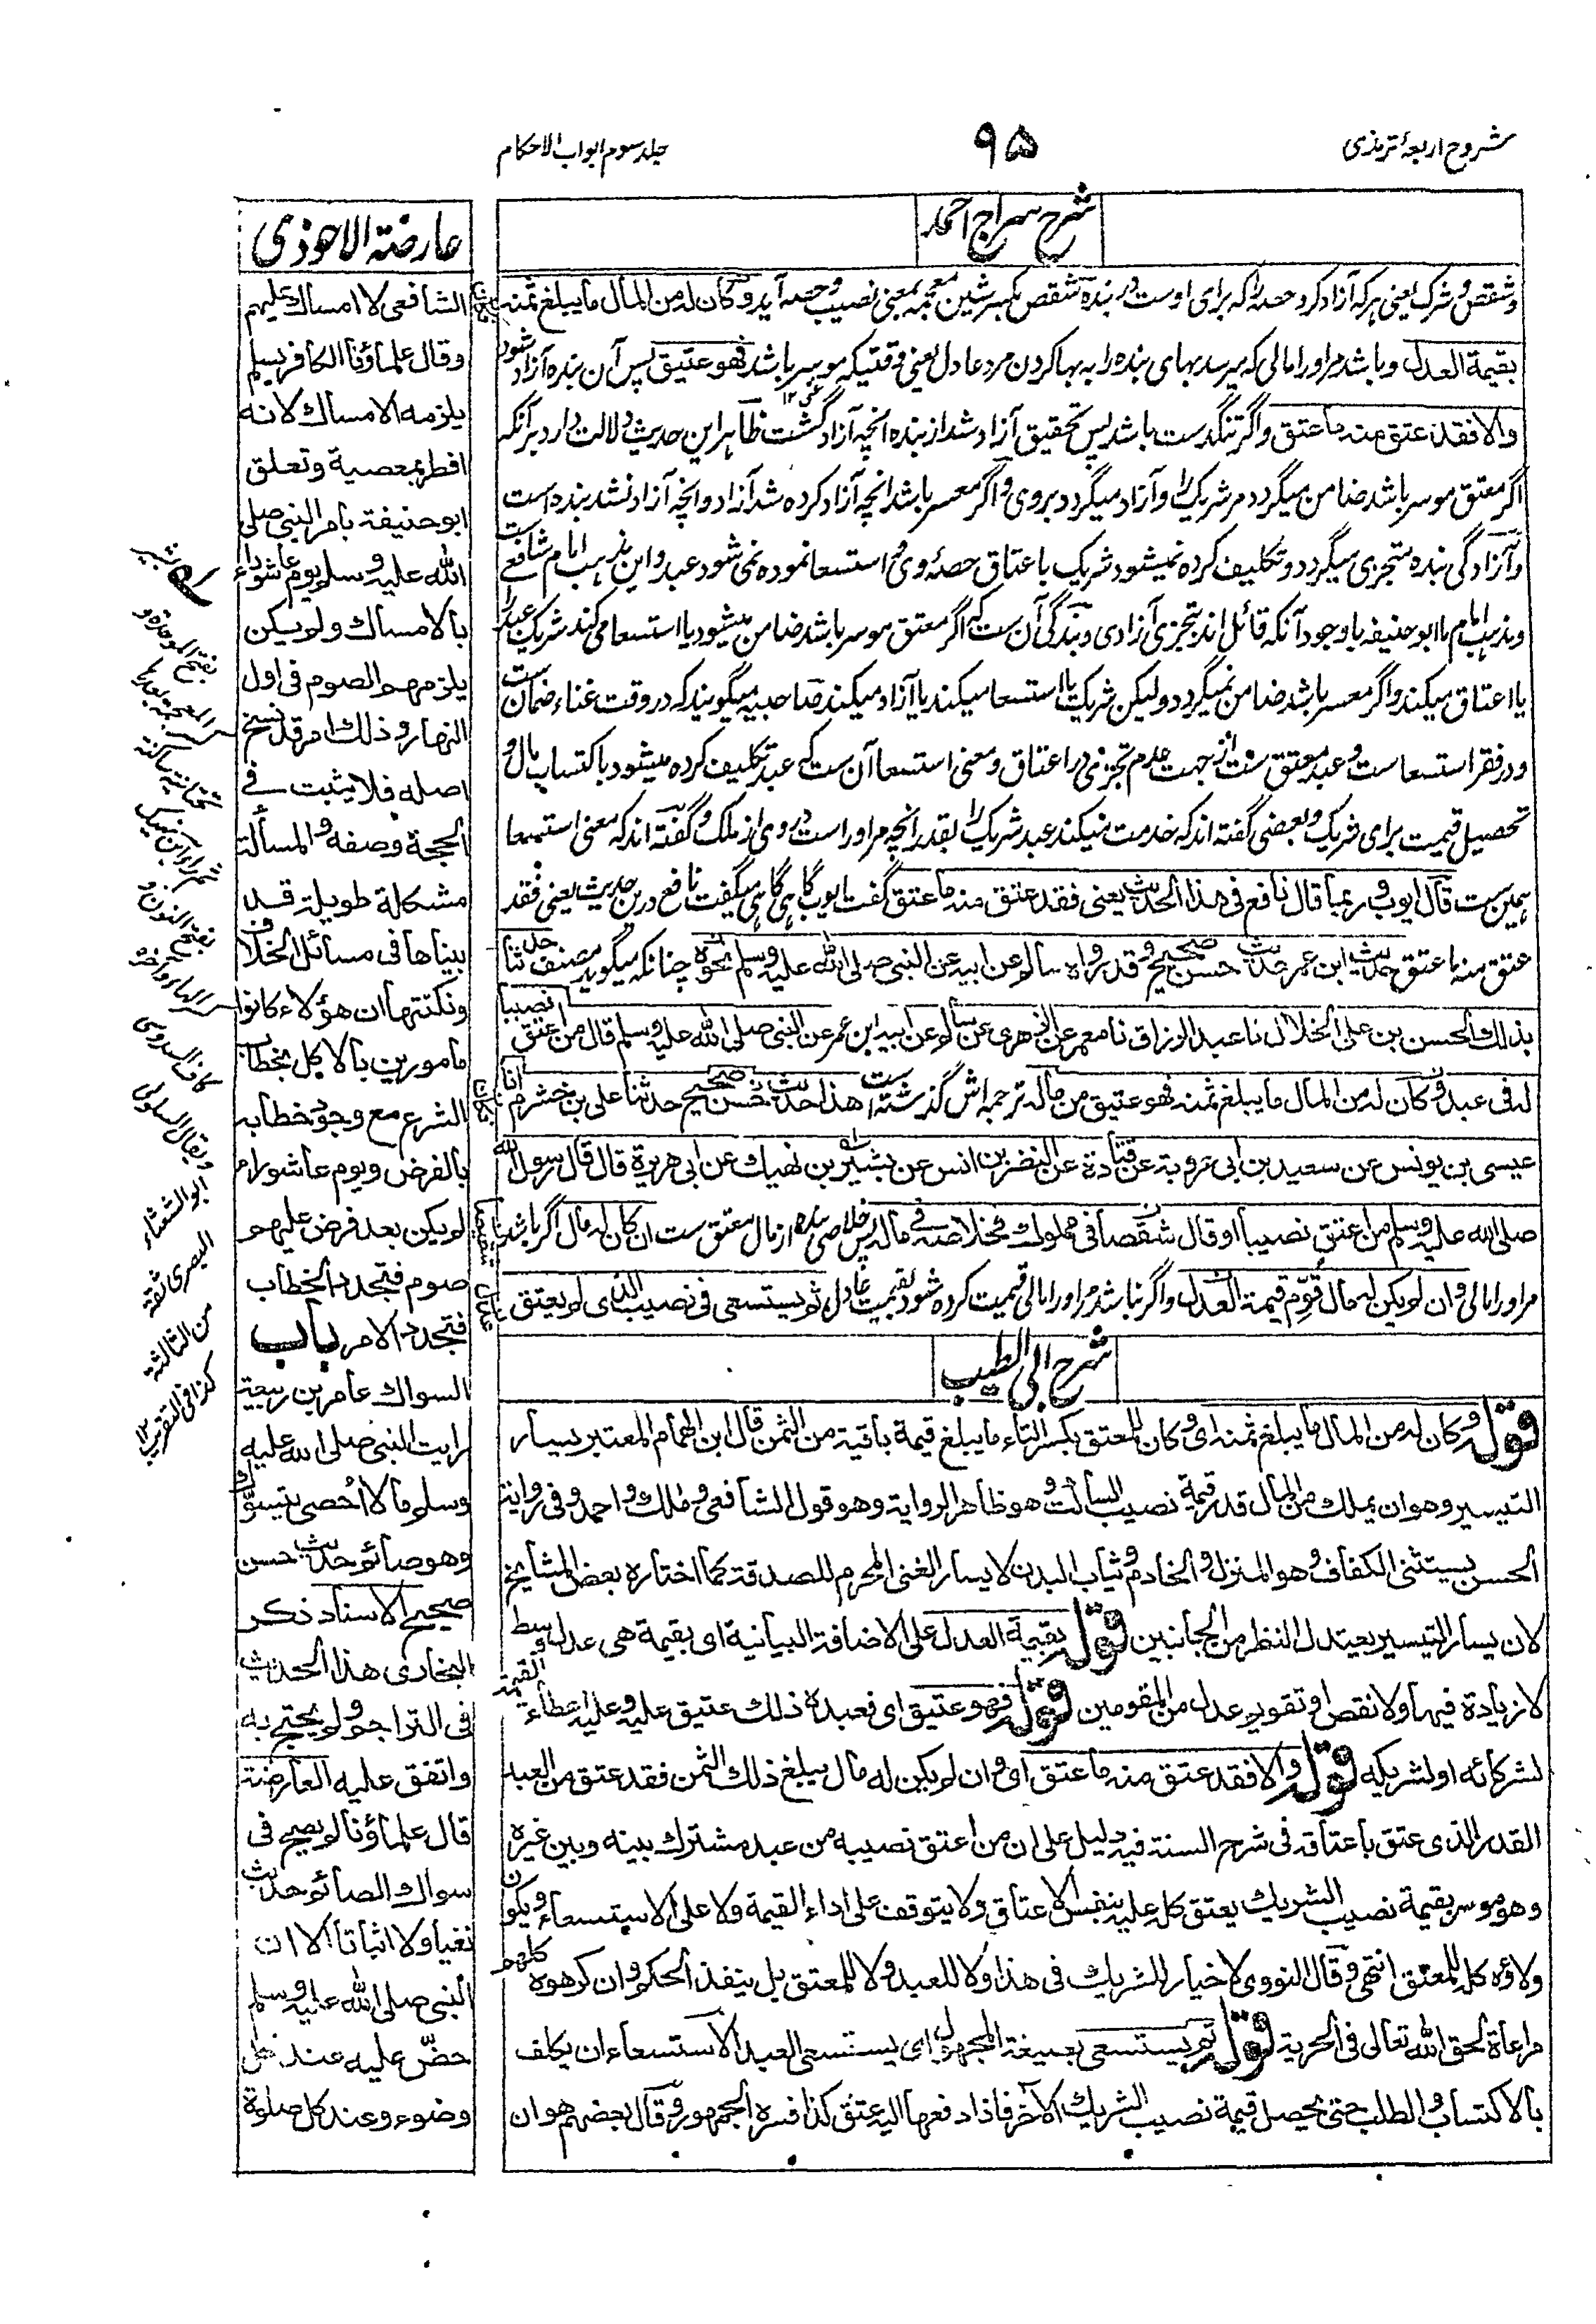 شروح اربعۂ ترمذی
۹۵
جلد سوم ابواب الاحکام
شرح سراج احمد
و شقص و شرک یعنی ہرکہ آزاد کرد حصہ را کہ برای اوست در بندہ شقص بکسر شین معجمہ بمعنی نصیب و حصہ آید وکان لہ من المال ما یبلغ ثمنہ
بقیمة العدل و باشد مر او را مالی کہ برسد بہای بندہ را بہ بہا کردن مرد عادل یعنی وقتیکہ موسر باشد فهو عتیق پس آن بندہ آزاد شود
والا فقد عتق منه ما عتق و اگر تنگدست باشد پس تحقیق آزاد شد از بندہ انچہ آزاد گشت ظاہر این حدیث دلالت دارد بر آنکہ
اگر معتق موسر باشد ضامن میگردد مر شریک را و آزاد میگردد بروی و اگر معسر باشد انچہ آزاد کردہ شد آزاد و انچہ آزاد نشد بندہ است
و آزادگی بندہ متجزی میگردد و تکلیف کردہ نمیشود شریک با عتاق حصۂ وی و استسعا نمودہ نمی شود عبد و این مذہب امام شافعی ست
و مذہب امام ما ابو حنیفہ با وجود آنکہ قائل اند بتجزی آزادی و بندگی آن ست کہ اگر معتق موسر باشد ضامن میشود یا استسعا می کند شریک عبد را
یا اعتاق میکند و اگر معسر باشد ضامن نمیگردد و لیکن شریک یا استسعا میکند یا آزاد میکند صاحبیہ میگویند کہ در وقت غناء ضمان ست
و در فقر استسعا ست و عبد معتق ست از جہت عدم تجزی در اعتاق و معنی استسعا آن ست کہ عبد تکلیف کردہ میشود باکتساب مال و
تحصیل قیمت برای شریک و بعضی گفتہ اند کہ خدمت میکند عبد شریک را بقدر انچہ مر او راست در وی از ملک و گفتہ اند کہ معنی استسعا
ہمین ست قال ایوب و ربما قال نافع فی هذا الحدیث یعنی فقد عتق منه ما عتق گفت ایوب گاہی گاہی میگفت نافع درین حدیث یعنی فقد
عتق منه ما عتق حدیث ابن عمر حدیث حسن صحیح وقد رواه سالم عن ابیه عن النبی صلی الله علیه وسلم نحوه چنانکہ میگوید مصنف حدثنا
بذلك الحسن بن علی الخلال نا عبد الرزاق نا معمر عن الزهری عن سالم عن ابیه ابن عمر عن النبی صلی الله علیه وسلم قال من اعتق نصیبا
له فی عبد وکان له من المال ما یبلغ ثمنه فهو عتیق من ماله ترجمہ اش گذشتہ است هذا حدیث حسن صحیح حدثنا علی بن خشرم انا
عیسی بن یونس عن سعید بن ابی عروبة عن قتادة عن النضر بن انس عن بشیر بن نهیك عن ابی هریرة قال قال رسول الله
صلی الله علیه وسلم من اعتق نصیبا او قال شقصا فی مملوك فخلاصه فی ماله پس خلاصی بندہ از مال معتق ست ان کان له مال اگر باشد
مر او را مالی وان لم یکن له مال قوّم قیمة العدل و اگر نباشد مر او را مالی قیمت کردہ شود بقیمت عادل ثم یستسعی فی نصیب الذی لم یعتق
شرح ابی الطیب
قوله وکان له من المال ما یبلغ ثمنه ای وکان للمعتق بکسر التاء ما یبلغ قیمة باقیه من الثمن قال ابن الهمام المعتبر یسار
التیسیر وهو ان یملك من المال قدر قیمة نصیب الساکت وهو ظاهر الروایة وهو قول الشافعی و مالك و احمد وفی روایة
الحسن یستثنی الکفاف وهو المنزل والخادم و ثیاب البدن لا یسار الغنی المحرم للصدقة کما اختاره بعض المشایخ
لان یسار التیسیر یعتدل النظر من الجانبین قوله بقیمة العدل علی الاضافة البیانیة ای بقیمة هی عدل وسط
لا زیادة فیها ولا نقص او تقویم عدل من المقومین قوله فهو عتیق ای فعبده ذلك عتیق علیه وعلیه اعطاء القیمة
لشرکائه او لشریکه قوله والا فقد عتق منه ما عتق ای وان لم یکن له مال یبلغ ذلك الثمن فقد عتق من العبد
القدر الذی عتق باعتاقه فی شرح السنة فیه دلیل علی ان من اعتق نصیبه من عبد مشترك بینه وبین غیره
وهو موسر بقیمة نصیب الشریك یعتق کله علیه بنفس الاعتاق ولا یتوقف علی اداء القیمة ولا علی الاستسعاء ویکون
ولاؤه کله للمعتق انتهی وقال النووی لا خیار للشریك فی هذا ولا للعبد ولا للمعتق بل ینفذ الحکم وان کرهوه کلهم
مراعاة لحق الله تعالی فی الحریة قوله ثم یستسعی بصیغة المجهول ای یستسعی العبد الاستسعاء ان یکلف
بالاکتساب والطلب حتی یحصل قیمة نصیب الشریك الآخر فاذا دفعها الیه عتق کذا فسره الجمهور وقال بعضهم هو ان
عارضة الاحوذی
الشافعی لا امساك علیهم
وقال علماؤنا الکافر یسلم
یلزمه الامساك لانه
افطر بمعصیة وتعلق
ابو حنیفة بامر النبی صلی
الله علیه وسلم یوم عاشوراء
بالامساك ولم یکن
یلزمهم الصوم فی اول
النهار وذلك امر قد نسخ
اصله فلا یثبت فی
الحجة وصفه والمسألة
مشکلة طویلة قد
بیناها فی مسائل الخلاف
ونکتتها ان هؤلاء کانوا
مامورین بالاکل بخطاب
الشرع مع وجود خطابه
بالفرض ویوم عاشوراء
لم یکن بعد فرض علیهم
صوم فتجدد الخطاب
فتجدد الامر باب
السواك عامر بن ربیعة
رایت النبی صلی الله علیه
وسلم ما لا اُحصی یتسوّك
وهو صائم حدیث حسن
صحیح الاسناد ذکر
البخاری هذا الحدیث
فی التراجم ولم یحتج به
واتفق علیه العارضة
قال علماؤنا لم یصح فی
سواك الصائم حدیث
نفیا ولا اثباتا الا ان
النبی صلی الله علیه وسلم
حضّ علیه عند کل
وضوء وعند کل صلوة
بشیر
بفتح الموحدة و
تحتانیة ساکنة
بفتح النون و
کاف السدوسی
ویقال السلولی
ابو الشعثاء
البصری ثقة
من الثالثة
کذا فی التقریب ۱۲